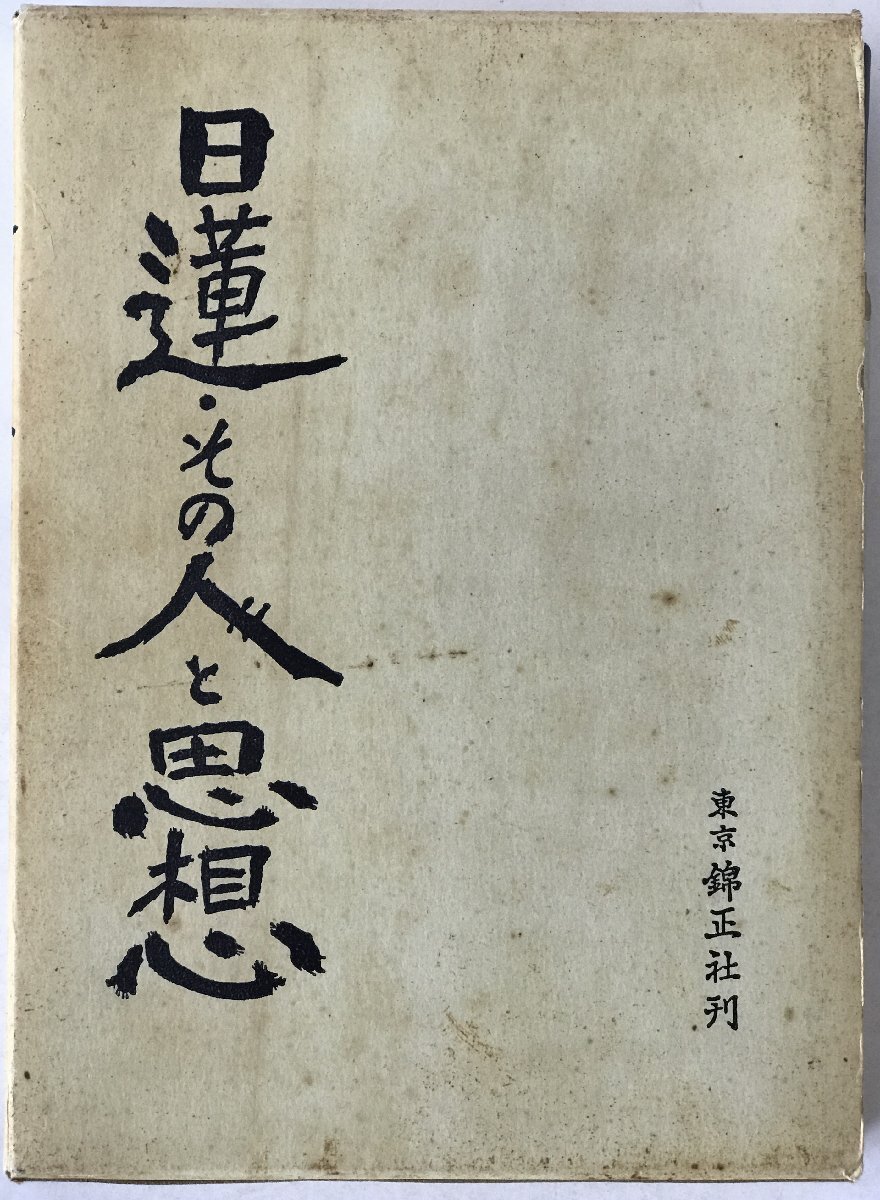 日蓮・その人と思想
東京錦正社刊